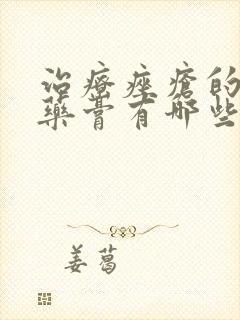 治療痤瘡的
藥膏有哪些
姜葛